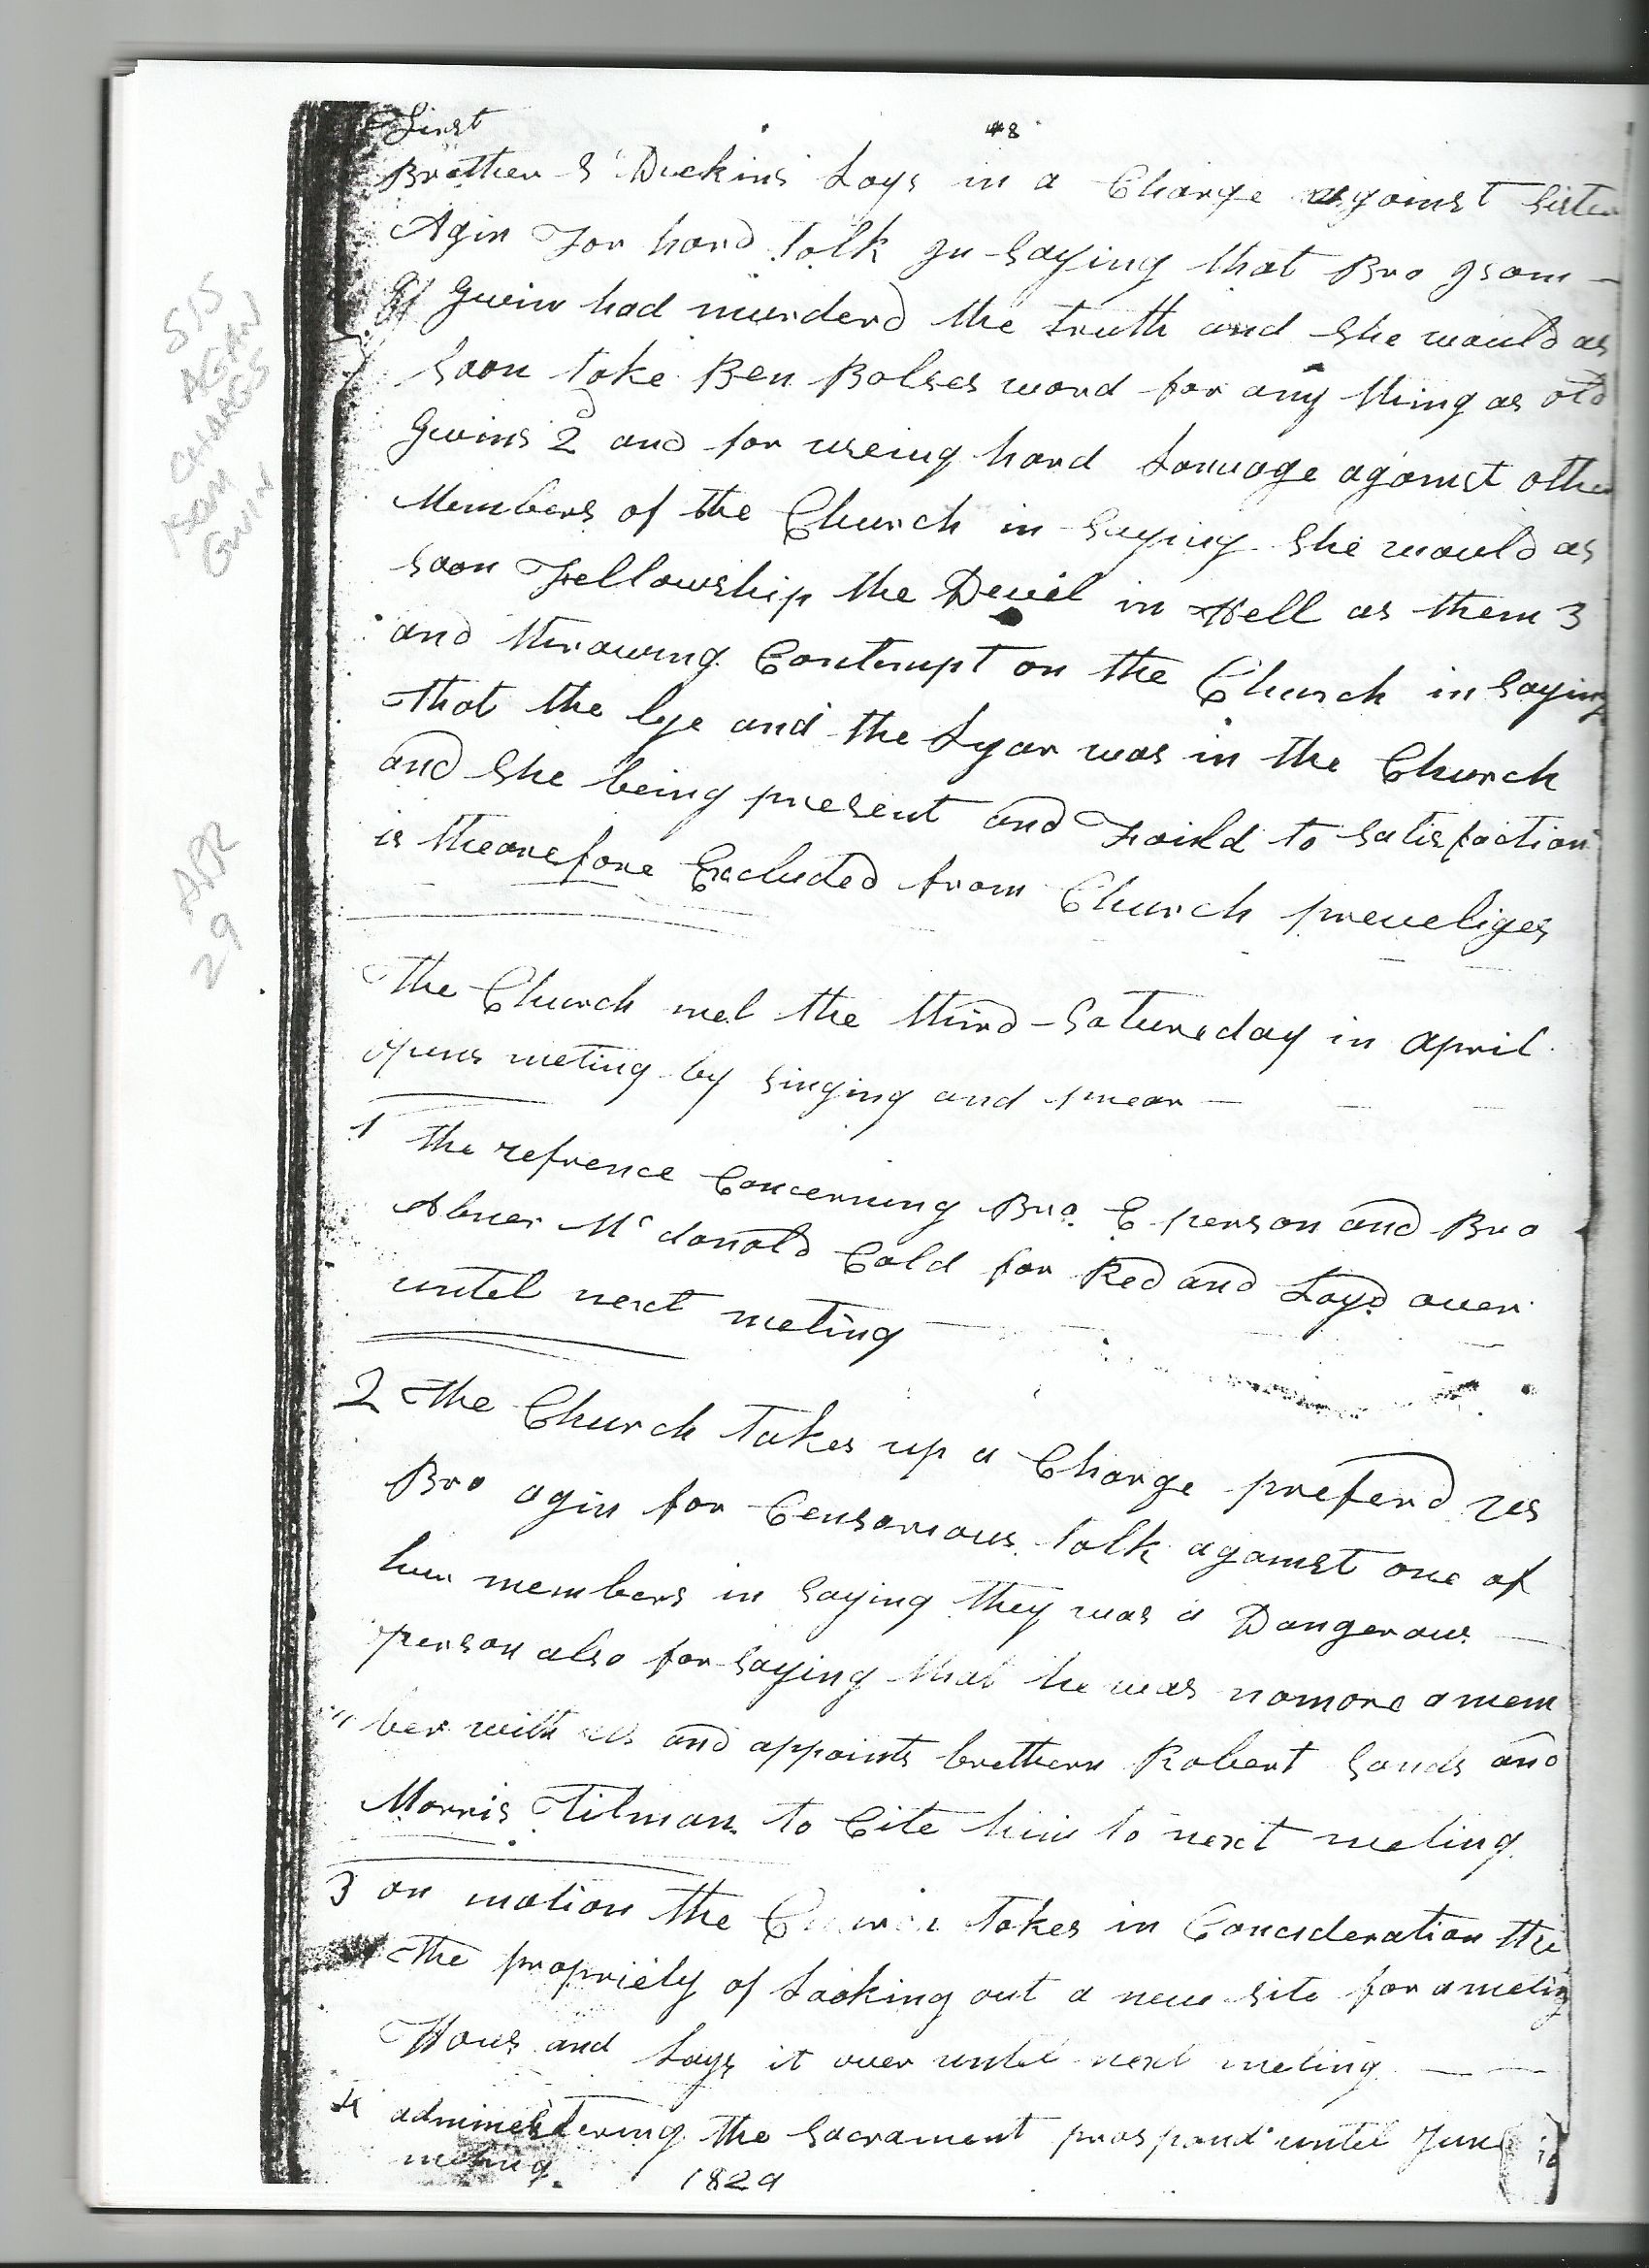 First
#8
Brother S Dickins Lays in a Charge against Sister
Agin For hard talk In Saying that Bro Isom
Gwin had murderd the truth and She would as
Soon take Ben Bolses word for any thing as old
Gwins 2 and for useing hard Lanuage against other
Members of the Church in Saying She would as
Soon Fellowship the Devil in Hell as them 3
and throwing Contempt on the Church in Saying
that the lye and the Lyar was in the Church
and She being present and Faild to Satisfaction
is thearefore Excluded from Church preveliges
The Church met the third Satureday in april
opens meting by Singing and
1 the refrence Concerning Bro. Eperson and Bro
Abner Mcdonald Cald for Red and Layd over
until next meting
2 The Church takes up a Charge preferd
Bro agin for Censorious talk against one of
her members in Saying they was a Dangerous
person also for Saying that he was nomore a mem
ber with us and appoints brethern Robert Sands and
Morris Tilman to Cite him to next meting
3 on motion the Church takes in Concideration the
the propriety of Looking out a new Site for a meting
Hous and Lays it over until next meting
4 adminestering the Sacrament pospond until June
meting. 1829
SIS
AGAN
CHARGS
ISOM
GWIN
APR
29